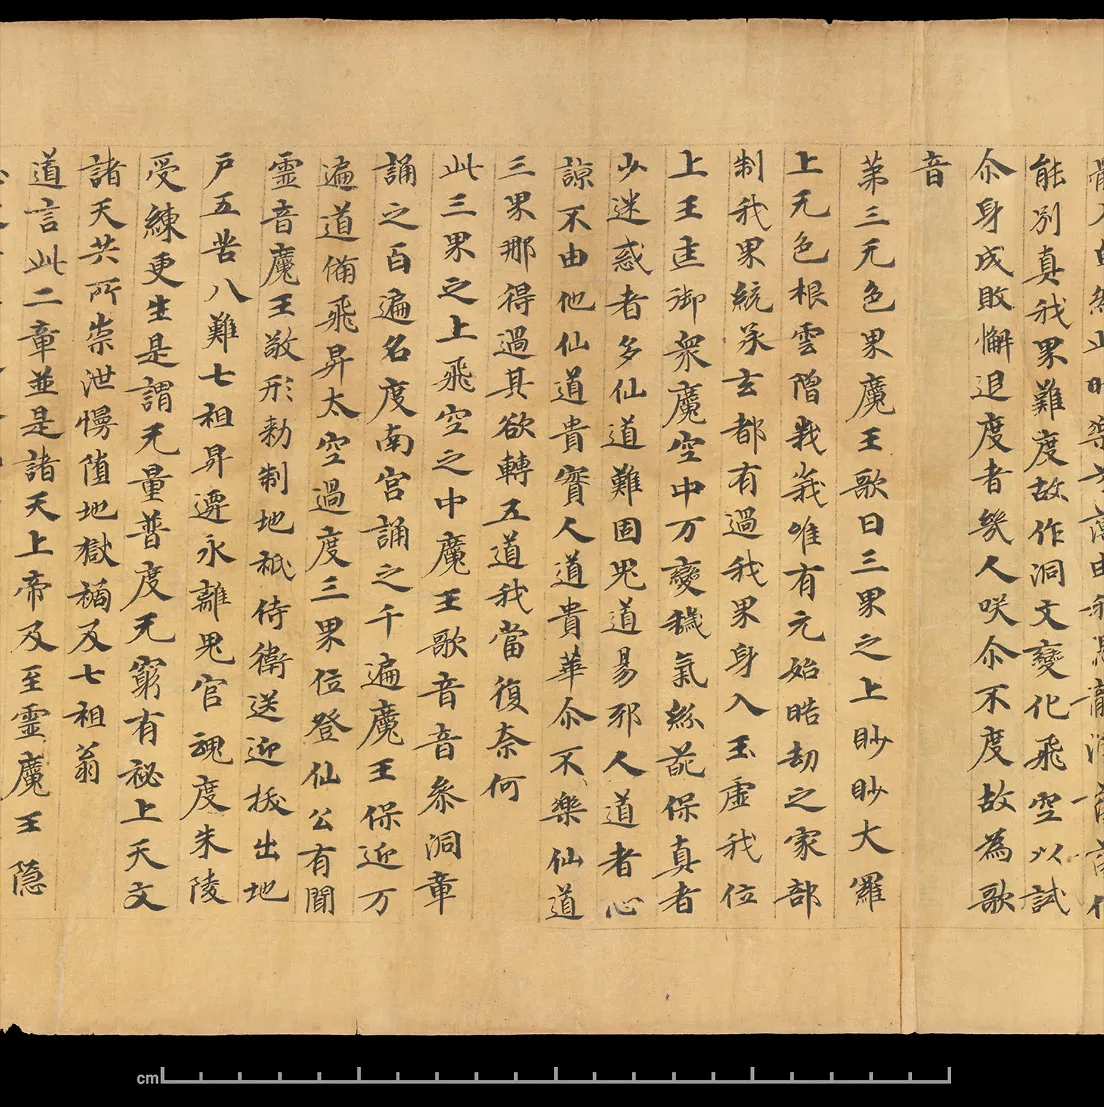 能別真我界難度故作洞文變化飛空以試
尒身成敗懈退度者幾人咲尒不度故為歌
音
第三无色界魔王歌曰三界之上眇眇大羅
上无色根雲層峩峩唯有元始晧劫之家部
制我界統承玄都有過我界身入玉虛我位
上王匡御衆魔空中万變穢氣紛葩保真者
少迷惑者多仙道難固鬼道易邪人道者心
諒不由他仙道貴實人道貴華尒不樂仙道
三界那得過其欲轉五道我當復奈何
此三界之上飛空之中魔王歌音音參洞章
誦之百遍名度南宫誦之千遍魔王保迎万
遍道備飛昇太空過度三界位登仙公有聞
霊音魔王敬形勑制地祇侍衛送迎拔出地
戸五苦八難七祖昇遷永離鬼官魂度朱陵
受練更生是謂无量普度无窮有祕上天文
諸天共所崇泄慢墮地獄禍及七祖翁
道言此二章並是諸天上帝及至霊魔王 隱